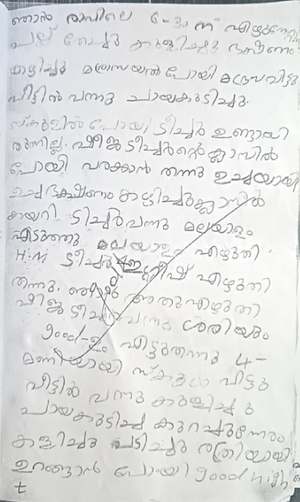 ഞാൻ രാവിലെ 6-30 ന് എഴുന്നേറ്റു
പല്ല് തേച്ചു കുളിച്ചു ഭക്ഷണം
കഴിച്ചു മദ്രസയിൽ പോയി മദ്രസവിട്ടു
വീട്ടിൽ വന്നു ചായകുടിച്ചു.
സ്കൂളിൽ പോയി ടീച്ചർ ഉണ്ടായി
രുന്നില്ല. ഷീജ ടീച്ചറുടെ ക്ലാസിൽ
പോയി വരക്കാൻ തന്നു ഉച്ചയായി
ഉച്ചഭക്ഷണം കഴിച്ചു ക്ലാസിൽ
കയറി. ടീച്ചർ വന്നു മലയാളം
എടുത്തു മലയാളം എഴുതി
H.M ടീച്ചർ ഇംഗ്ലീഷ് എഴുതി
തന്നു. ഞാൻ അതു എഴുതി
ഷീജ ടീച്ചർ വന്നു ശരിയും
good-ഉം ഇട്ടുതന്നു 4-
മണിയായി സ്കൂൾ വിട്ടു
വീട്ടിൽ വന്നു കുളിച്ചു
ചായകുടിച്ചു കുറച്ചുനേരം
കളിച്ചു പഠിച്ചു രാത്രിയായി
ഉറങ്ങാൻ പോയി good nigh
t